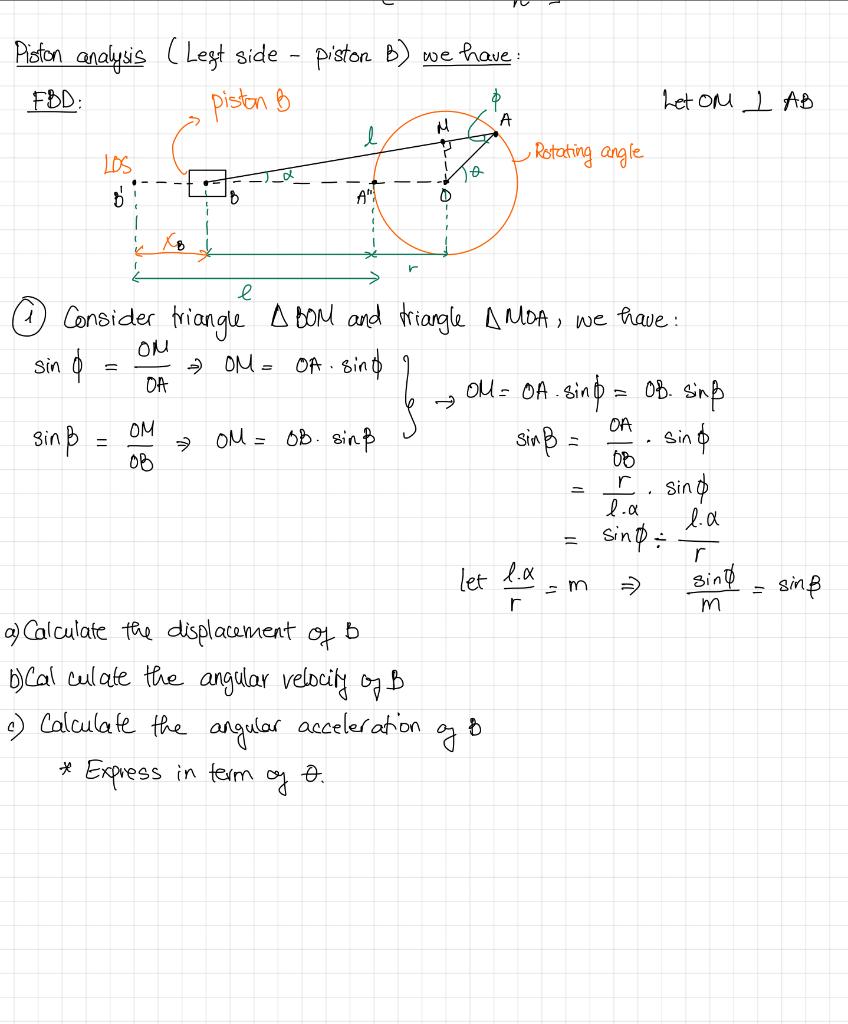 Piston analysis (Left side - piston B) we have:
FBD:
piston B
ϕ
Let OM ⊥ AB
M
A
l
Rotating angle
LDS
α
θ
B'
B
A''
O
x_B
r
l
① Consider triangle △BOM and triangle △MOA, we have:
sin ϕ = OM/OA ⇒ OM = OA . sin ϕ
sin β = OM/OB ⇒ OM = OB . sin β
→ OM = OA . sin ϕ = OB . sin β
sin β = OA/OB . sin ϕ
= r/l.α . sin ϕ
= sin ϕ ÷ l.α/r
let l.α/r = m ⇒ sin ϕ/m = sin β
a) Calculate the displacement of B
b) Cal culate the angular velocity of B
c) Calculate the angular acceleration of B
* Express in term of θ.